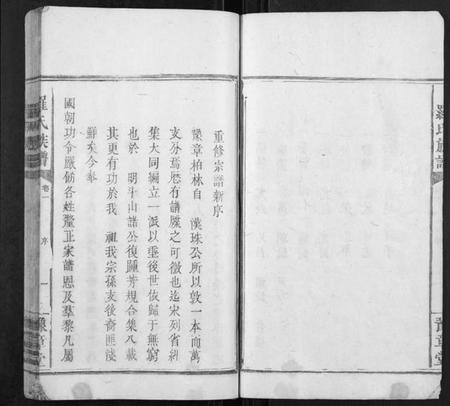 重修宗譜新序
豫章柏林自 漢珠公所以敦一本而萬
支分焉歷有譜牒之可徵也迄宋列省經
集大同編立一派以垂後世依歸于無窮
也於 明 山諸公復踵芳規合集八載
其更有功於我 祖我宗孫支後裔匪淺
鮮矣今奉
國朝功令嚴飭各姓釐正家譜恩及羣黎凡屬
羅氏族譜
卷一
序
一
豫章堂
羅氏族譜
豫章堂